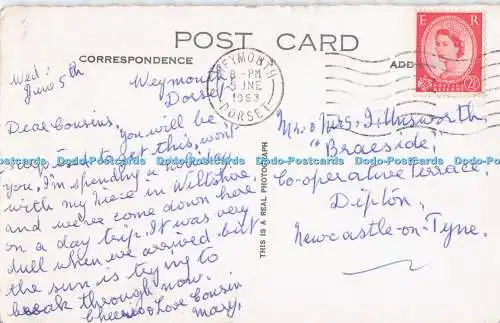 POST CARD
CORRESPONDENCE
ADD
E R
POSTAGE REVENUE
2½D
WEYMOUTH
8-PM
5 JNE
1963
DORSET
THIS IS A REAL PHOTOGRAPH
Wed:
June 5th
Weymouth
Dorset
Dear Cousins,
You will be
surprised to get this, won't
you, I'm spending a holiday
with my niece in Wiltshire
and we've come down here
on a day trip. It was very
dull when we arrived but
the sun is trying to
break through now.
Cheerioo Love Cousin
Mary.
Mr. & Mrs.
"Braeside,"
Co-operative Terrace,
Dipton,
Newcastle-on-Tyne.
Dodo-Postcards Dodo-Postcards Dodo-Postcards Dodo-Postcards Dodo-Postcards